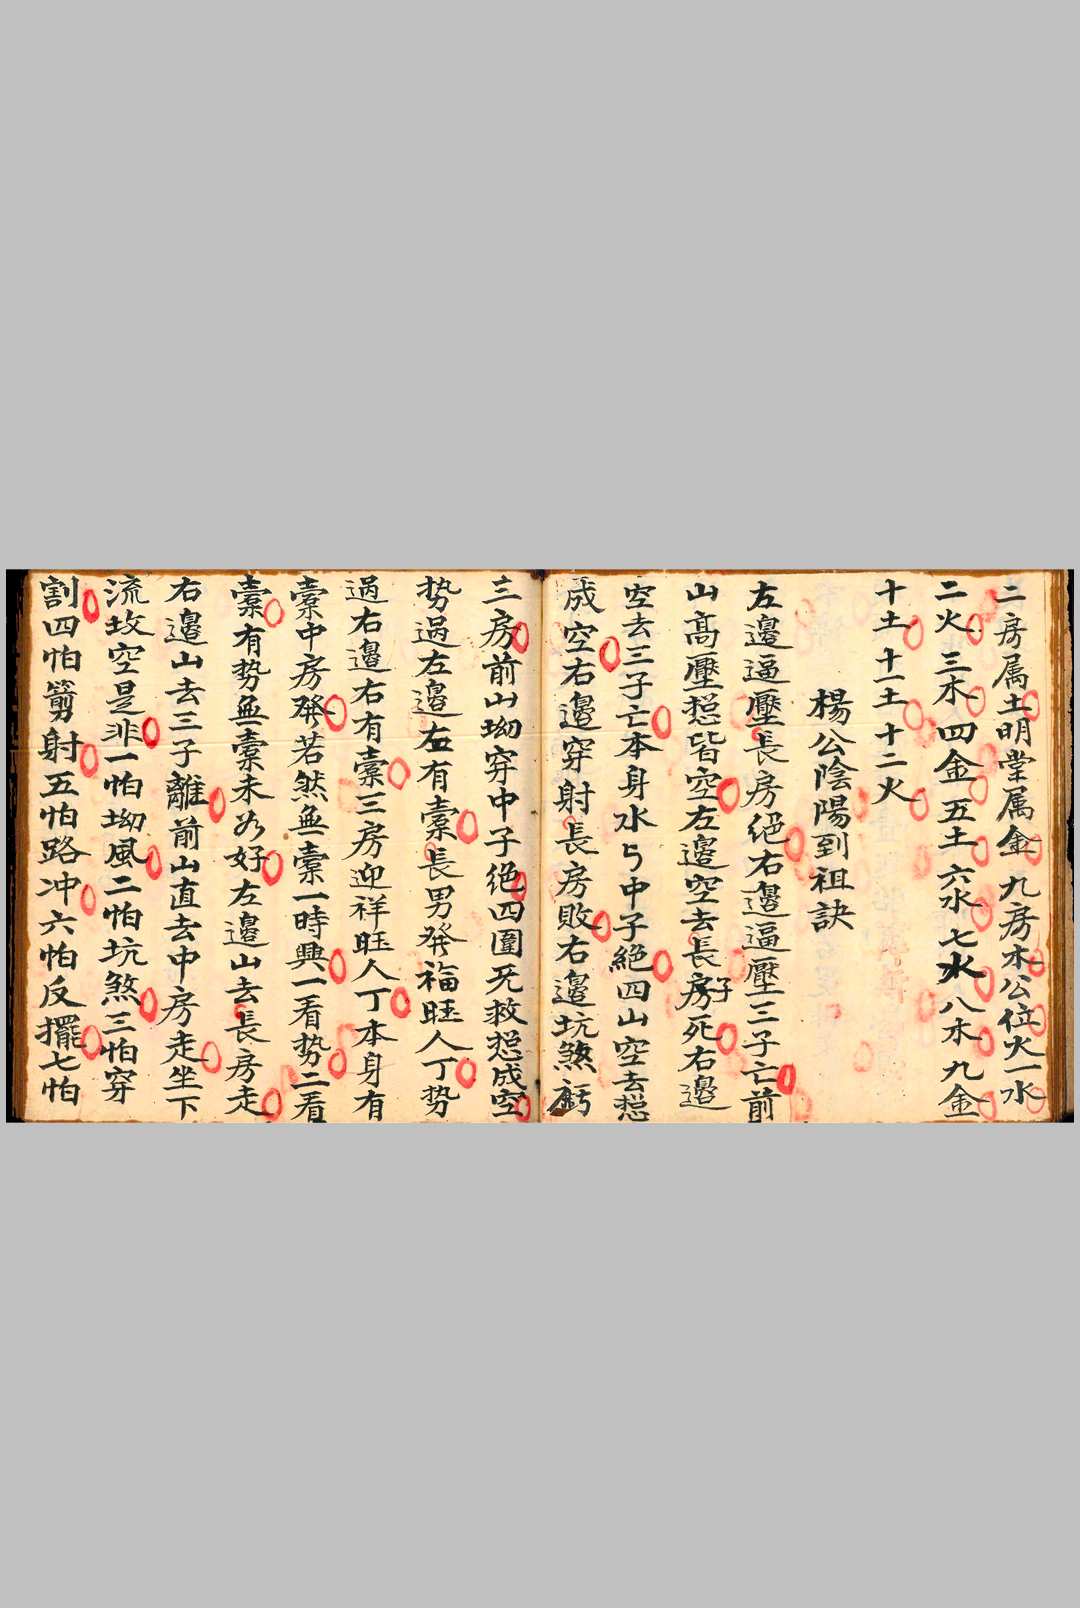 三房属土明堂属金九房木公位火一水
二火三木四金五土六水七水八木九金
十土十一土十二火
楊公陰陽到祖訣
左邉逼壓長房絕右邉逼壓三子亡前
山髙壓揔皆空左邉空去長房子死右邉
空去三子亡本身水与中子絕四山空去揔
成空右邉穿射長房敗右邉坑煞虧
三房前山坳穿中子绝四圍无救揔成空
势過左邉左有槖長男發福旺人丁势
過右邉右有槖三房迎祥旺人丁本身有
槖中房發若然無槖一時興一看势二看
槖有势無槖未为好左邉山去長房走
右邉山去三子離前山直去中房走坐下
流坟空是非一怕坳風二怕坑煞三怕穿
割四怕箭射五怕路冲六怕反擺七怕